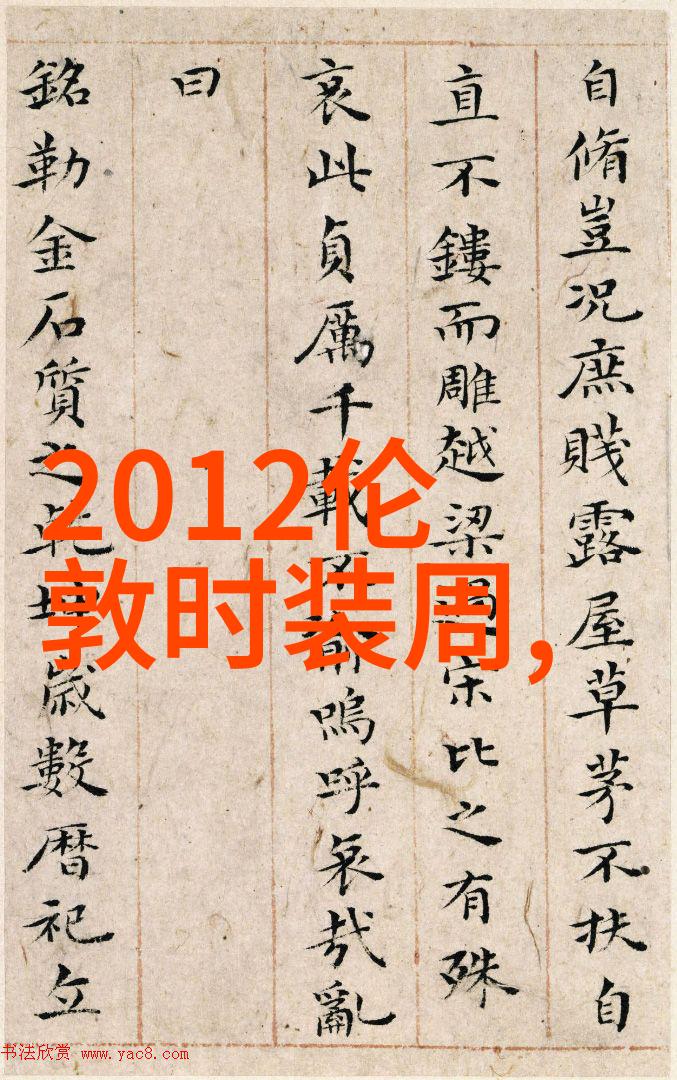 自脩豈況庶賤露屋草茅不扶自
直不鏤而雕越梁宋比之有殊
哀此貞厲千載不嗚呼哀哉亂
曰
銘勒金石質之乾歲數暦祀立
2012伦
敦时装周,
书法欣赏 www.yac8.com